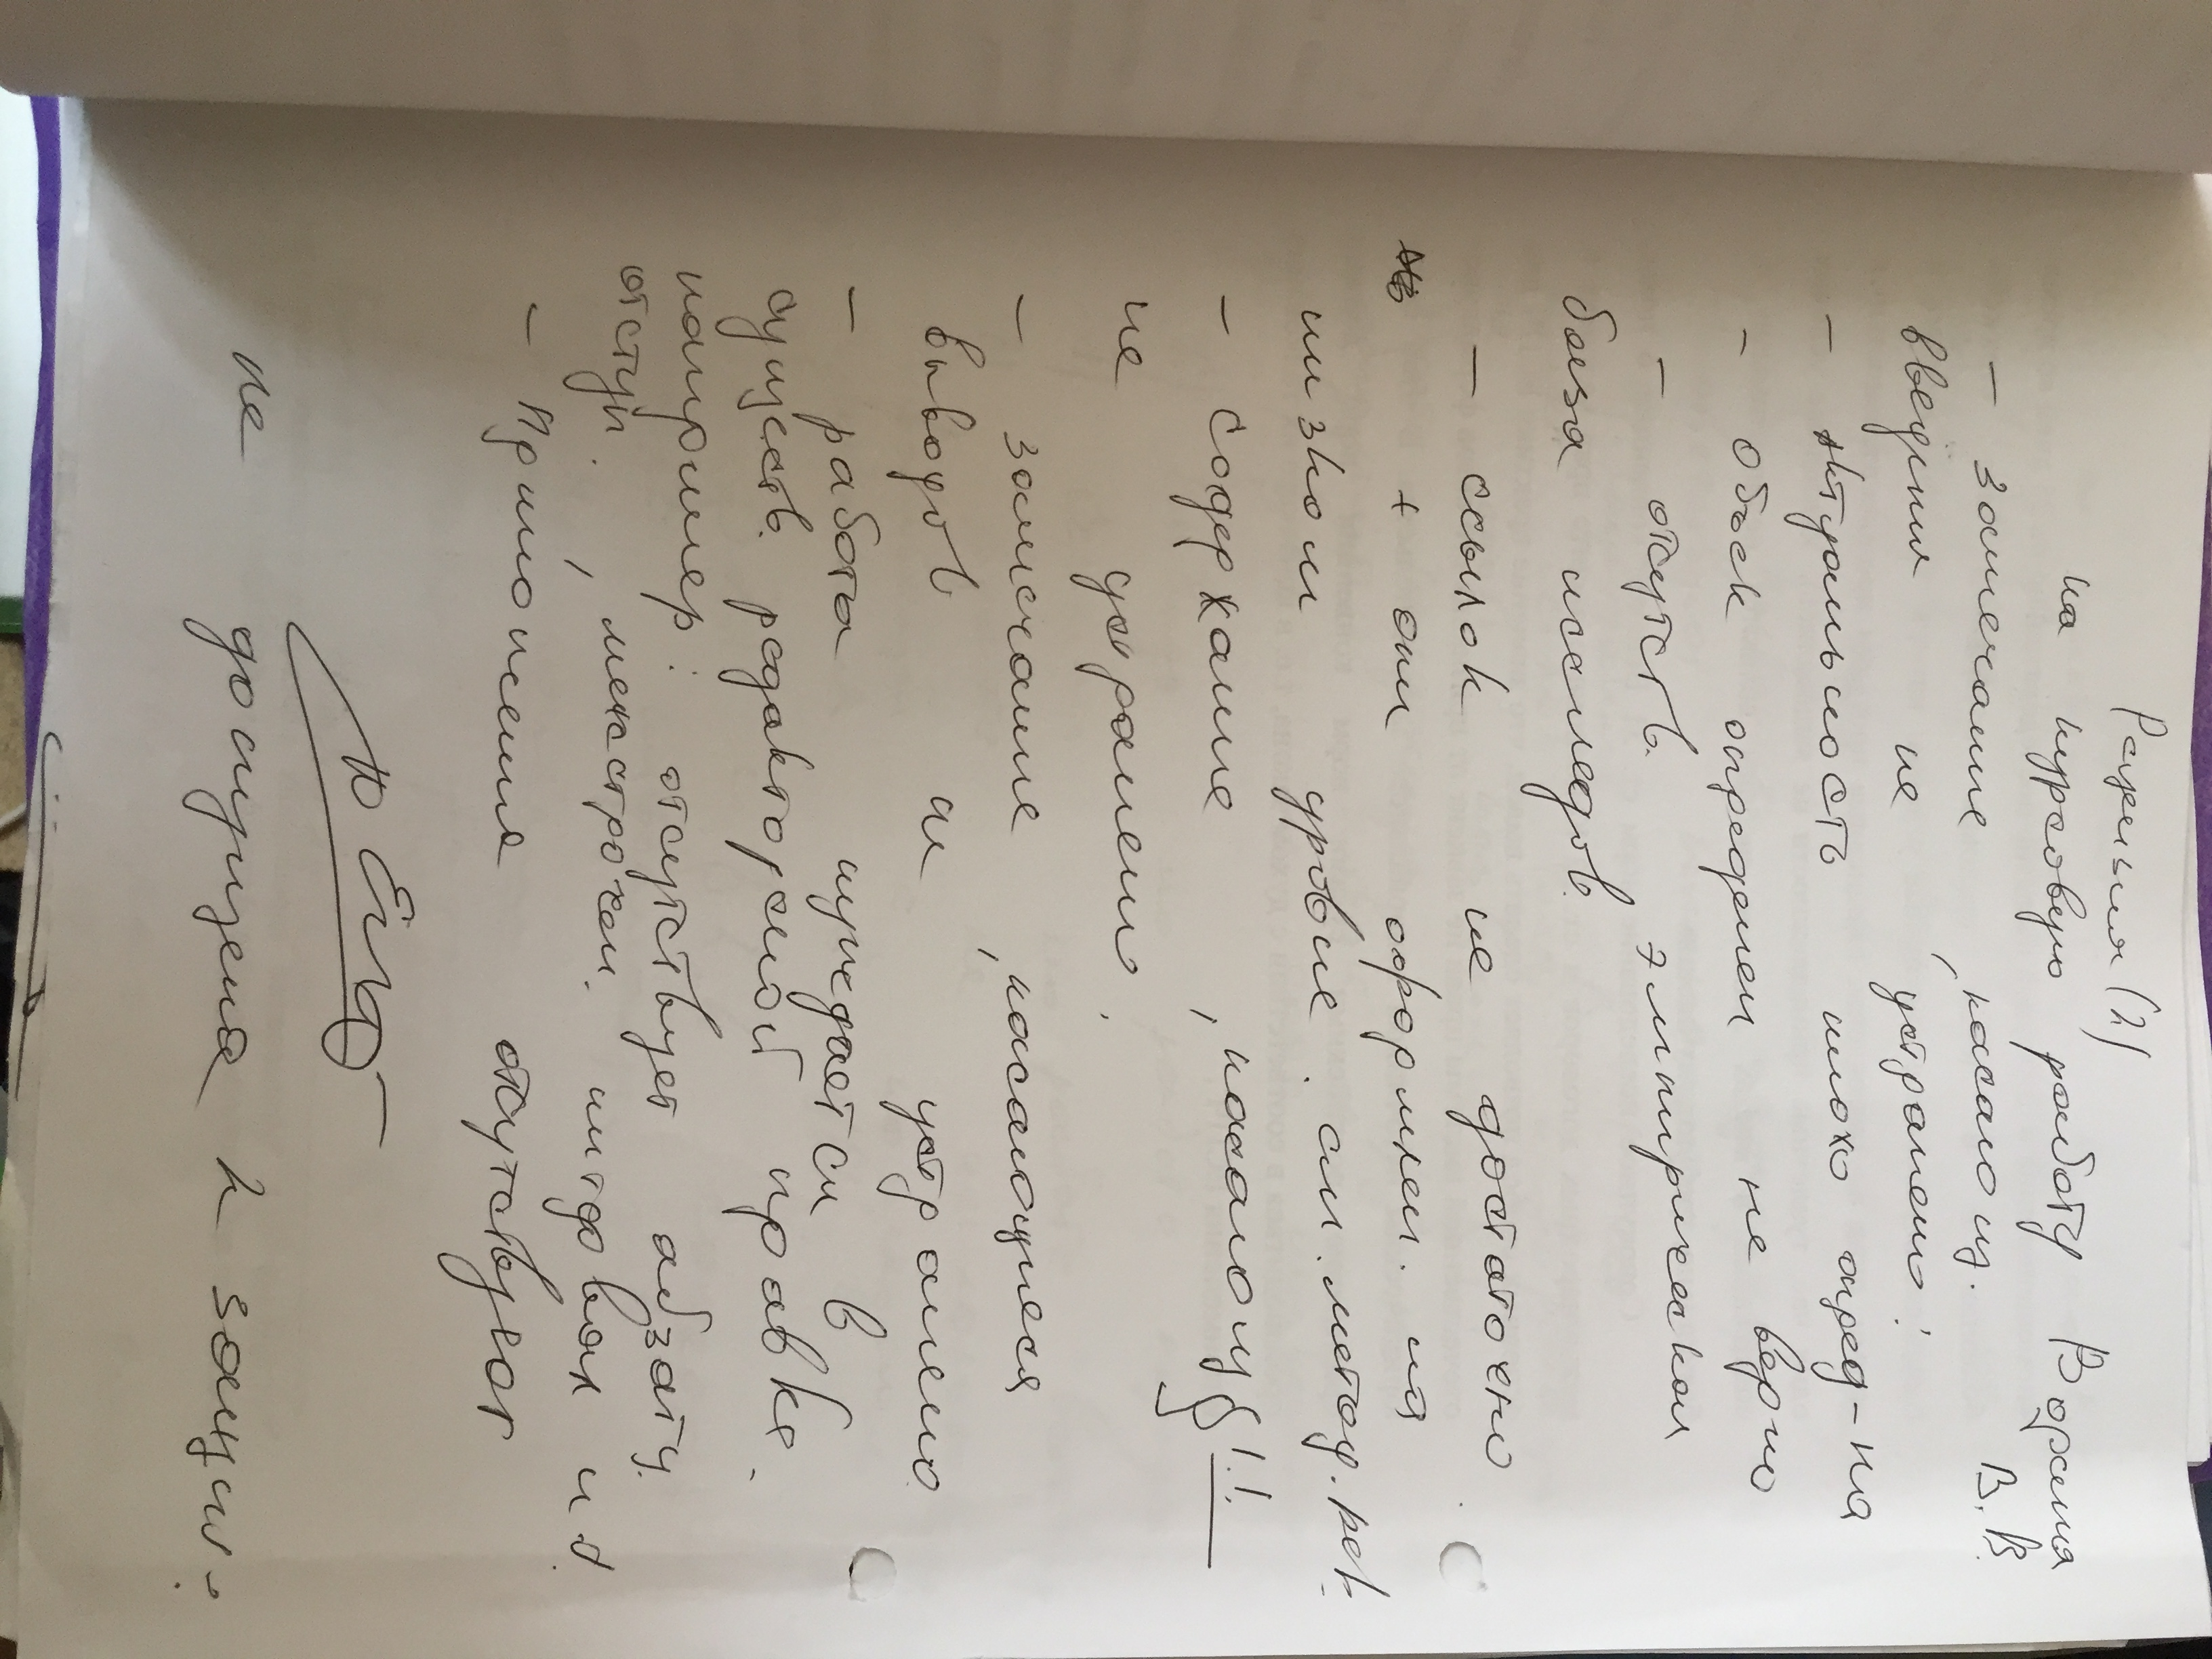 Рецензия (2)
на курсовую работу Воронина В.В.
– замечание, касающ.
введения не устранено!
– актуальность плохо опред-на
– объек определен не верно
– отсутств. эмпирическая
база исследов.
– ссылок не достаточно.
+ они оформлен. на
низком уровне. см. метод. рек.
– содержание, кошмар!!!
не устранено,
– замечание, касающиеся
выводов не устранено
– работа нуждается в
существ. редакторской правке.
например: отсутствует абзатц.
отступ., межстрочн. интервал и д.
– приложения отсутствуют
не допущена к защите.